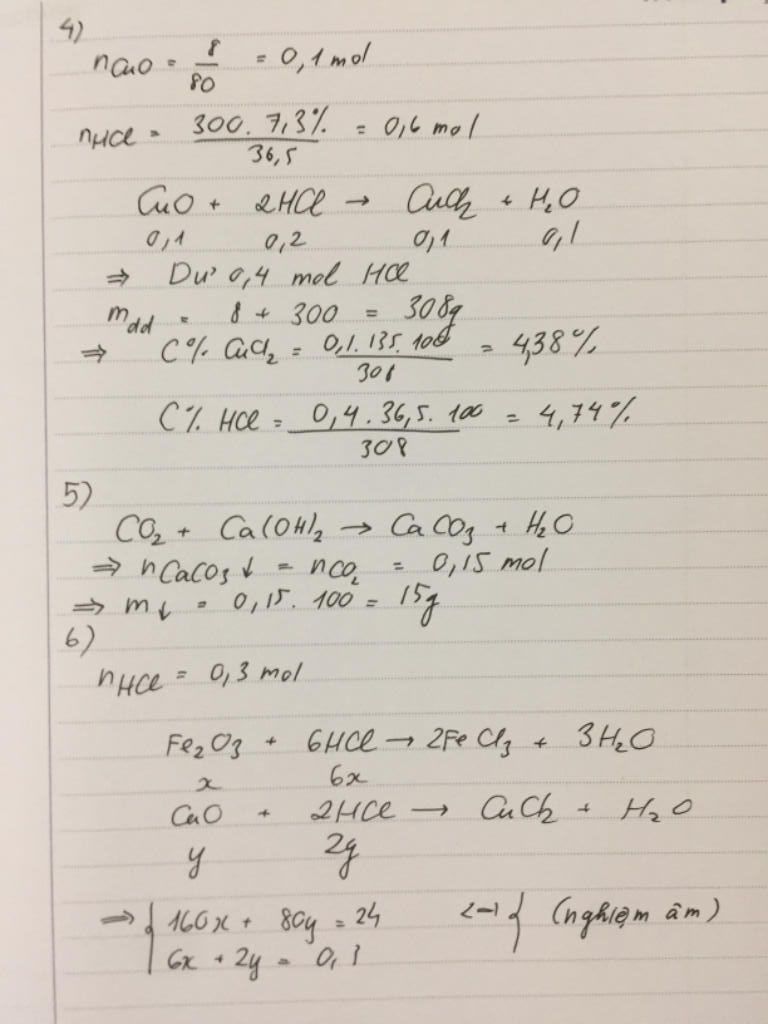 4)
nCuO = 8/80 = 0,1 mol
nHCl = 300. 7,3%/36,5 = 0,6 mol
CuO + 2HCl → CuCl2 + H2O
0,1 0,2 0,1 0,1
⇒ Dư 0,4 mol HCl
mdd = 8 + 300 = 308g
⇒ C% CuCl2 = 0,1. 135. 100/308 = 4,38%
C% HCl = 0,4. 36,5. 100/308 = 4,74%
5)
CO2 + Ca(OH)2 → CaCO3 + H2O
⇒ nCaCO3↓ = nCO2 = 0,15 mol
⇒ m↓ = 0,15. 100 = 15g
6)
nHCl = 0,3 mol
Fe2O3 + 6HCl → 2FeCl3 + 3H2O
x 6x
CuO + 2HCl → CuCl2 + H2O
y 2y
⇒ { 160x + 80y = 24 <-> { (nghiệm âm)
6x + 2y = 0,3